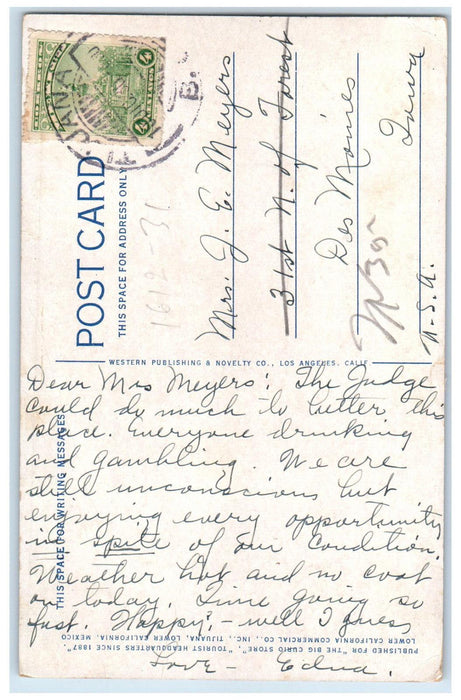 TIJUANA
B.
4
POST CARD
THIS SPACE FOR ADDRESS ONLY
1612-31
Mrs. J. E. Meyers
31st N. of Forest
Des Moines
Iowa
U-S.A.
WESTERN PUBLISHING & NOVELTY CO., LOS ANGELES, CALIF
THIS SPACE FOR WRITING MESSAGES
Dear Mrs Meyers: The Judge
could do much to better this
place. Everyone drinking
and gambling. We are
still unconscious but
enjoying every opportunity
in spite of our condition.
Weather hot and no coat
on today. Time going so
fast. Happy? - well I guess
Love - Edna.
PUBLISHED FOR "THE BIG CURIO STORE", "TOURIST HEADQUARTERS SINCE 1887"
LOWER CALIFORNIA COMMERCIAL CO., INC., TIJUANA, LOWER CALIFORNIA, MEXICO